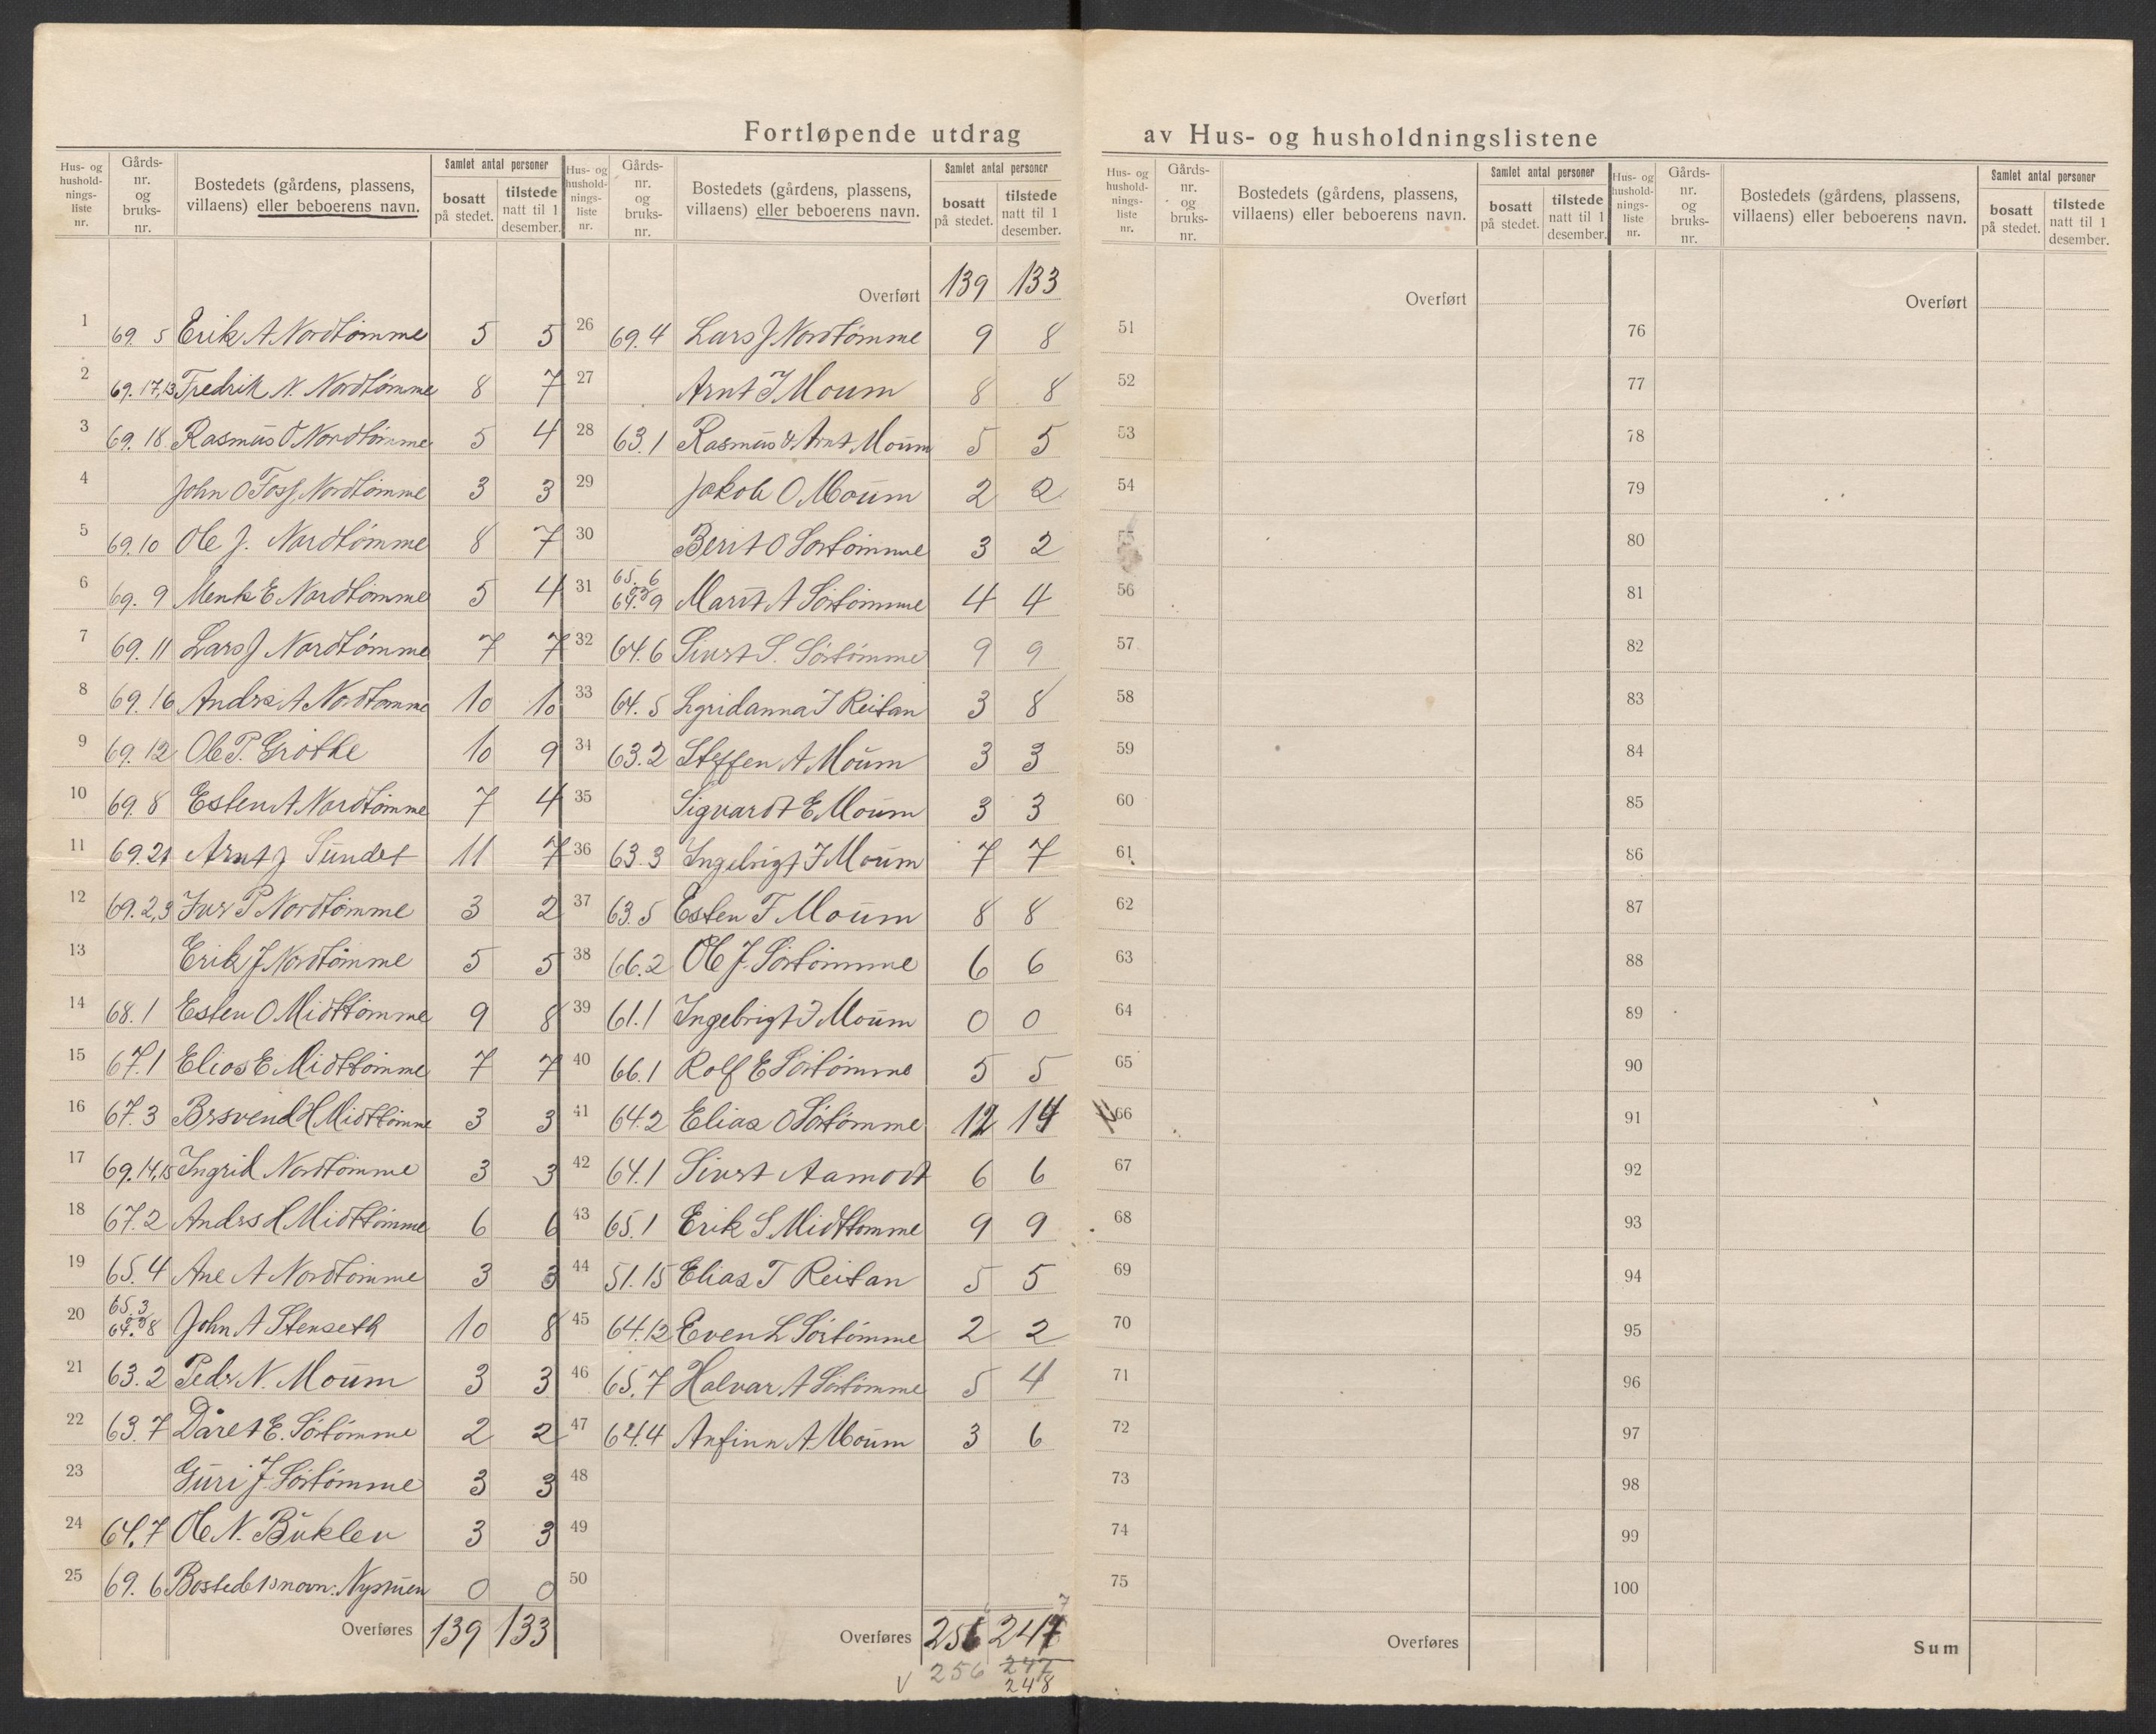 Fortløpende utdrag av Hus- og husholdningslistene
Hus- og husholdnings-liste nr. Gårds-nr. og bruks-nr. Bostedets (gårdens, plassens, villaens) eller beboerens navn. Samlet antal personer bosatt på stedet. tilstede natt til 1 desember.
1 69. 5 Erik A Nordtømme 5 5
2 69. 17,13 Fredrik N. Nordtømme 8 7
3 69. 18 Rasmus O Nordtømme 5 4
4 John O Foss Nordtømme 3 3
5 69. 10 Ole J. Nordtømme 8 7
6 69. 9 Menk E Nordtømme 5 4
7 69. 11 Lars J Nordtømme 7 7
8 69. 16 Andrs A Nordtømme 10 10
9 69. 12 Ole P. Grøtke 10 9
10 69. 8 Esten A Nordtømme 7 4
11 69. 21 Arnt J Sundet 11 7
12 69. 2,3 Ivr P Nordtømme 3 2
13 Erik J Nordtømme 5 5
14 68. 1 Esten O Midttømme 9 8
15 67.1 Elias E Midttømme 7 7
16 67. 3 Brsvend H Midttømme 3 3
17 69. 14,15 Ingrid Nordtømme 3 3
18 67. 2 Andrs H Midttømme 6 6
19 65. 4 Ane A Nordtømme 3 3
20 65. 3 og 64. 8 John A Stenseth 10 8
21 63. 2 Pedr N. Moum 3 3
22 63. 7 Dåret E. Sörtömme 2 2
23 Guri J Sörtömme 3 3
24 64. 7 Ole N. Buklev 3 3
25 69. 6 Bostedets navn: Nystuen 0 0
Overføres 139 133
Hus- og husholdnings-liste nr. Gårds-nr. og bruks-nr. Bostedets (gårdens, plassens, villaens) eller beboerens navn. Samlet antal personer bosatt på stedet. tilstede natt til 1 desember.
Overført 139 133
26 69. 4 Lars J Nordtømme 9 8
27 Arnt J Moum 8 8
28 63. 1 Rasmus & Arnt Moum 5 5
29 Jakob O Moum 2 2
30 Berit O Sörtömme 3 2
31 65. 6 og 64. 9 Marit A Sörtömme 4 4
32 64. 6 Sivrt S. Sörtömme 9 9
33 64. 5 Ingridanna J Reitan 3 8
34 63. 2 Steffen A Moum 3 3
35 Sigvardt E Moum 3 3
36 63. 3 Ingebrigt J Moum 7 7
37 63. 5 Esten T Moum 8 8
38 66. 2 Ole J. Sörtömme 6 6
39 61.1 Ingebrigt J Moum 0 0
40 66.1 Rolf E Sörtömme 5 5
41 64.2 Elias O Sörtömme 12 14
42 64.1 Sivrt Aamodt 6 6
43 65.1 Erik S. Midttømme 9 9
44 51. 15 Elias T Reitan 5 5
45 64.12 Even L Sörtömme 2 2
46 65. 7 Halvar A Sörtömme 5 4
47 64.4 Anfinn A Moum 3 6
48
49
50
Overføres 256 247
V 256 247
248
Hus- og husholdnings-liste nr. Gårds-nr. og bruks-nr. Bostedets (gårdens, plassens, villaens) eller beboerens navn. Samlet antal personer bosatt på stedet. tilstede natt til 1 desember.
Overført
51
52
53
54
55
56
57
58
59
60
61
62
63
64
65
66
67
68
69
70
71
72
73
74
75
Overføres
Hus- og husholdnings-liste nr. Gårds-nr. og bruks-nr. Bostedets (gårdens, plassens, villaens) eller beboerens navn. Samlet antal personer bosatt på stedet. tilstede natt til 1 desember.
Overført
76
77
78
79
80
81
82
83
84
85
86
87
88
89
90
91
92
93
94
95
96
97
98
99
100
Sum